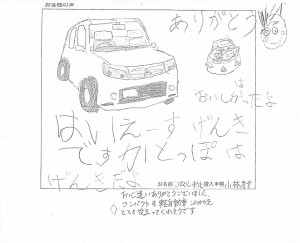 お客様の声
ありがとう
は
おいしかったよ
はいえーす げんき
ですか とっぽ は
げんき だよ
お名前 こばやし 購入車種
お心遣いありがとうございました
コンパクトな軽自動車
とても役立ってくれそうです